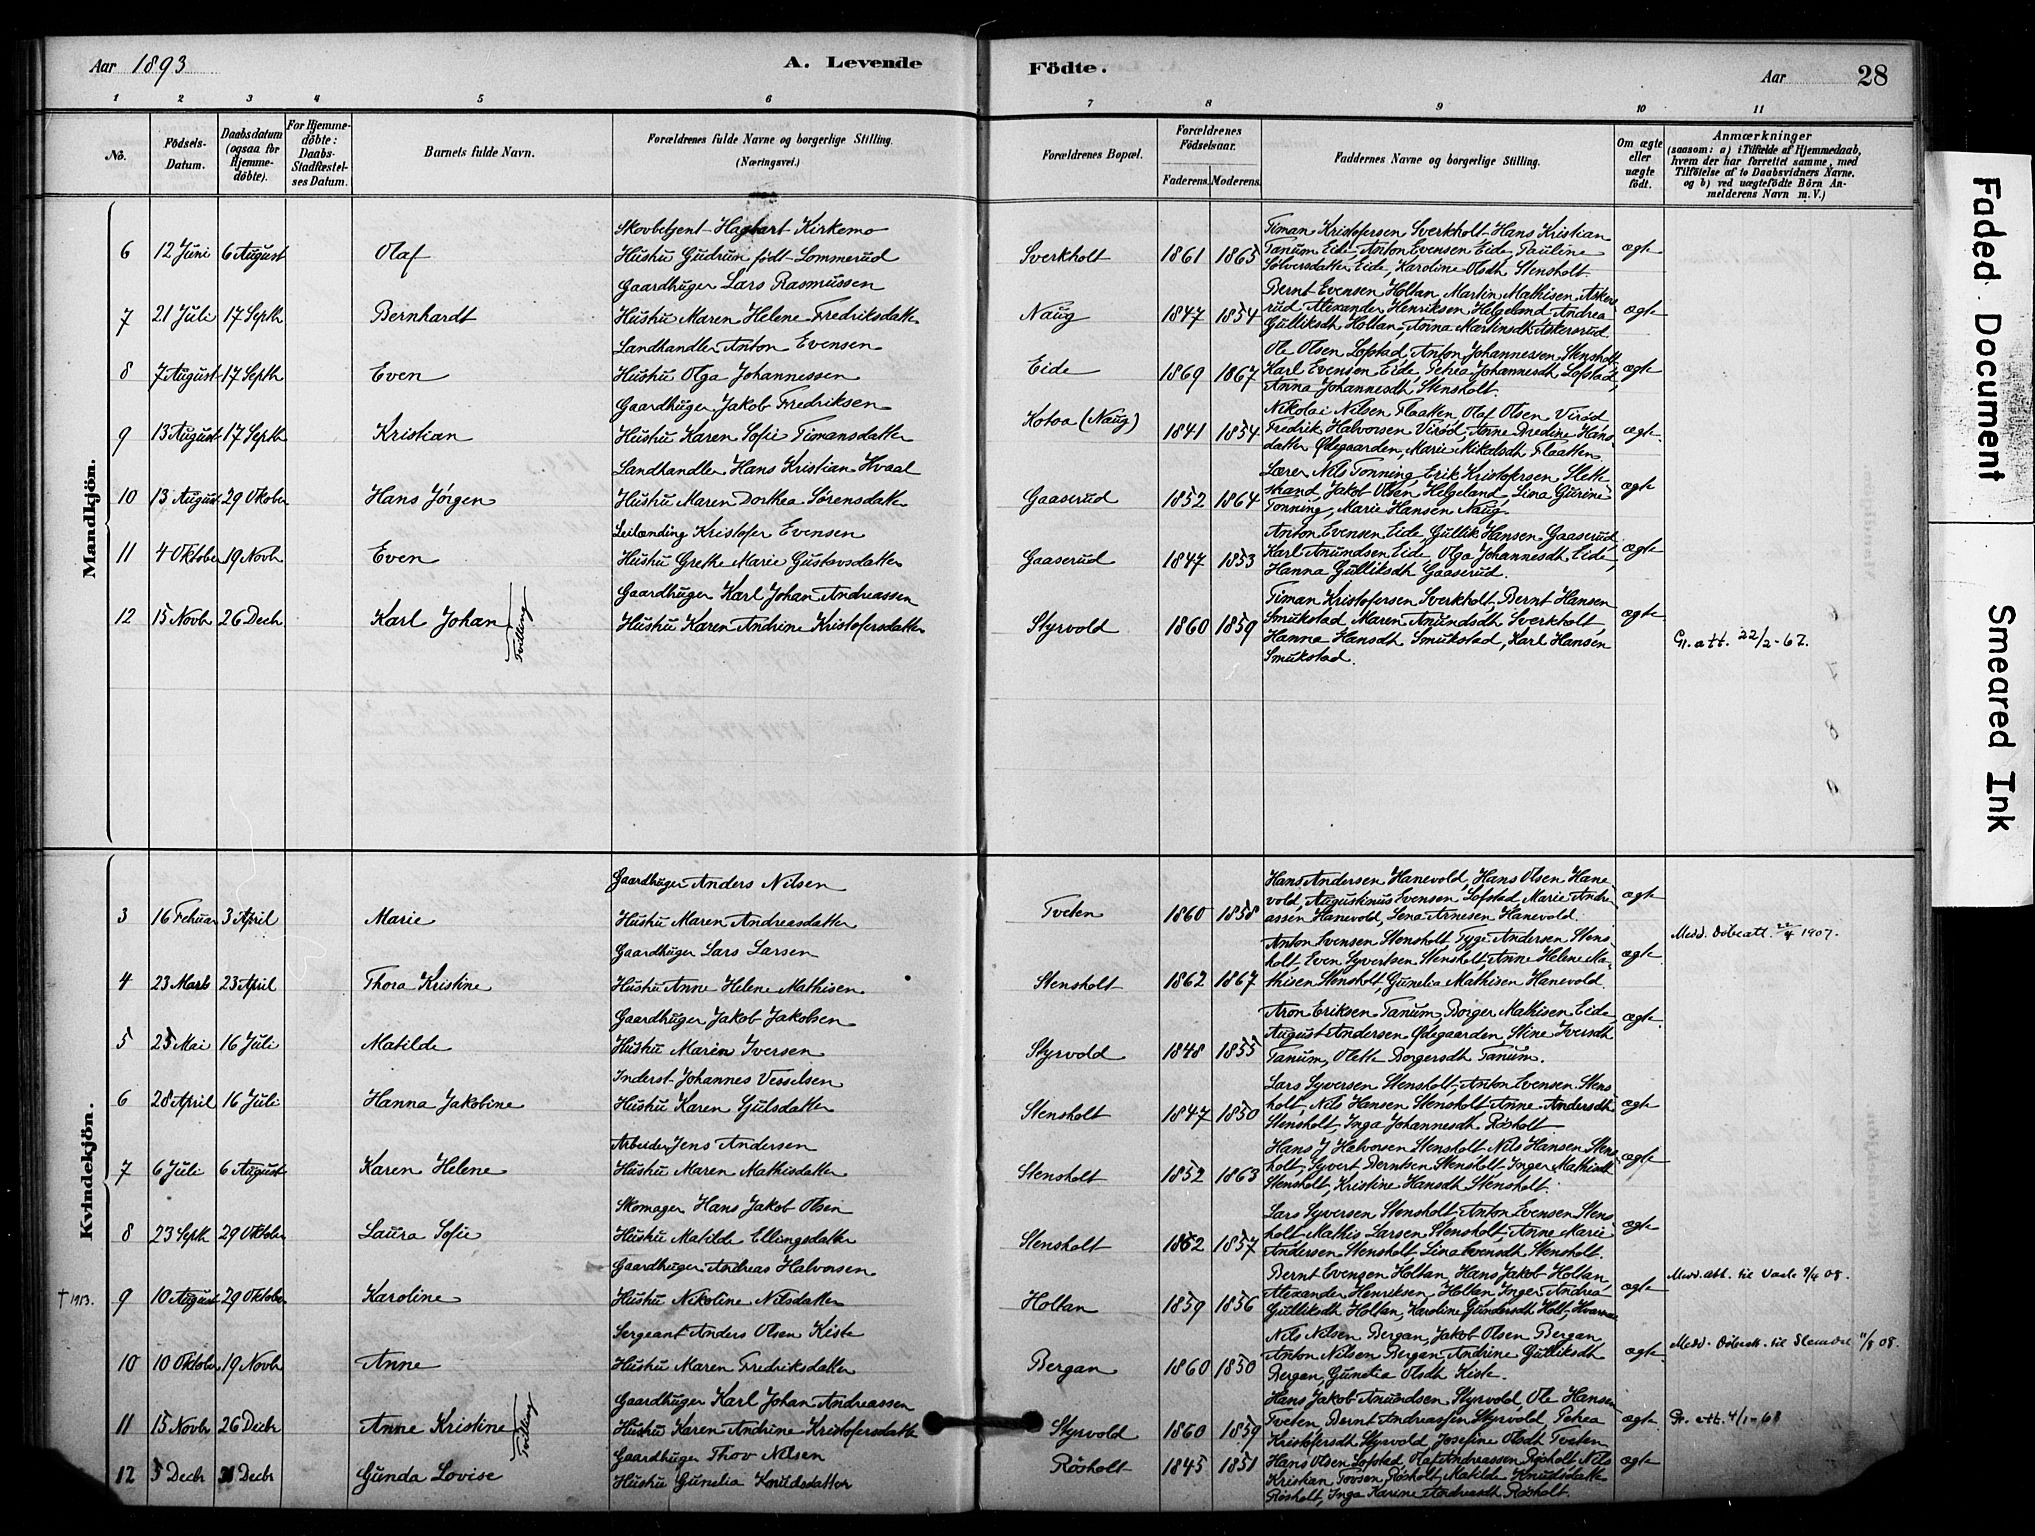 Aar 1893
A. Levende
Födte.
Aar
28
1 2 3 4 5 6 7 8 9 10 11
No.
Födsels-
Datum.
Daabsdatum
(ogsaa for
Hjemme-
döbte).
For Hjemme-
döbte:
Daabs-
Stadfæstel-
ses Datum.
Barnets fulde Navn.
Forældrenes fulde Navne og borgerlige Stilling.
(Næringsvei.)
Forældrenes Bopæl.
Forældrenes
Födselsaar.
Faderens. Moderens.
Faddernes Navne og borgerlige Stilling.
Om ægte
eller
uægte
födt.
Anmærkninger
(saasom: a) i Tilfælde af Hjemmedaab,
hvem der har forrettet samme, med
Tilföielse af to Daabsvidners Navne.
og b) ved uægtefödte Börn An-
melderens Navn m. V.)
Mandkjön.
Skovbetjent Hagbart Kirkemo
6 12 Juni 6 August Olaf Hustru Gudrun født Lommerud Sverkholt 1861 1865
Timan Kristofersen Sverkholt Hans Kristian
Tanum Eide, Anton Evensen Eide, Pauline
Sølversdatter Eide, Karoline Olsdt Stensholt
ægte
Gaardbruger Lars Rasmussen
7 21 Juli 17 Septb Bernhardt Hustru Maren Helene Fredriksdatter Naug 1847 1854
Bernt Evensen Holtan, Martin Mathisen Askers-
rud Alexander Henriksen Helgeland Andrea
Gulliksdt Holtan, Anna Martinsdt Askersrud
ægte
Landhandler Anton Evensen
8 7 August 17 Septb Even Hustru Olga Johannessen Eide 1869 1867
Ole Olsen Lofstad, Anton Johannessen Stensholt
Karl Evensen Eide Petrea Johannesdt Lofstad,
Anna Johannesdt Stensholt.
ægte
Gaardbruger Jakob Fredriksen
9 13 August 17 Septb Kristian Hustru Karen Sofie Timansdatter Kotoa (Naug) 1841 1854
Nikolai Nilsen Flaatten Olaf Olsen Virød
Fredrik Halvorsen Virød, Anne Bredine Hans-
datter Ødegaarden, Marie Mikalsdt Flaatten
ægte
Landhandler Hans Kristian Hvaal
10 13 August 29 Oktober Hans Jørgen Hustru Maren Dorthea Sørensdatter Gaaserud 1852 1864
Lærer Nils Tonning, Erik Kristofersen Slette
strand Jakob Olsen Helgeland, Lina Gurine
Tonning, Marie Hansen Naug
ægte
Leilænding Kristofer Evensen
11 4 Oktober 19 Novbr Even Hustru Grethe Marie Gustavsdatter Gaaserud 1847 1853
Anton Evensen Eide, Gullik Hansen Gaaserud
Karl Amundsen Eide, Olga Johannesdt Eide,
Hanna Gulliksdt Gaaserud.
ægte
Gaardbruger Karl Johan Andreassen
12 15 Novbr 26 Decbr Karl Johan Tvilling Hustru Karen Andrine Kristofersdatter Styrvold 1860 1859
Timan Kristofersen Sverkholt, Bernt Hansen
Smukstad Maren Amundsdt Sverkholt
Hanna Hansdt Smukstad, Karl Hansen
Smukstad.
ægte
Gr. att. 22/2-67.
Kvindekjön.
Gaardbruger Anders Nilsen
3 16 Februar 3 April Marie Hustru Maren Andreasdatter Tveten 1860 1858
Hans Andersen Hanevold, Hans Olsen Hane-
vold, Augustinus Evensen Lofstad Marie Andre-
assen Hanevold, Lena Arnesen Hanevold.
ægte
Medd. Døbeatt. 22/4 1907.
Gaardbruger Lars Larsen
4 23 Marts 23 April Thora Kristine Hustru Anne Helene Mathisen Stensholt 1862 1867
Anton Evensen Stensholt, Tyge Andersen Stens-
holt, Even Syvertsen Stensholt, Anne Helene Ma-
thisen Stensholt, Gunelia Mathisen Hanevold
ægte
Gaardbruger Jakob Jakobsen
5 25 Mai 16 Juli Matilde Hustru Maren Iversen Styrvold 1848 1855
Aron Eriksen Tanum, Borger Mathisen Eide,
August Andersen Ødegaarden, Stine Iversdt
Tanum, Olette Borgersdt Tanum.
ægte
Inderst Johannes Vesselsen
6 28 April 16 Juli Hanna Jakobine Hustru Karen Gjulsdatter Stensholt 1847 1850
Lars Syversen Stensholt, Anton Evensen Stens
holt, Nils Hansen Stensholt Anne Andersdt
Stensholt, Inga Johannesdt Røsholt
ægte
Arbeider Jens Andersen
7 6 Juli 6 August Karen Helene Hustru Maren Mathisdatter Stensholt 1852 1863
Hans J Halvorsen Stensholt Nils Hansen Stens-
holt, Syvert Berntsen Stensholt, Inger Mathisdt
Stensholt, Kristine Hansdt Stensholt.
ægte
Skomager Hans Jakob Olsen
8 23 Septb 29 Oktober Laura Sofie Hustru Matilde Ellingsdatter Stensholt 1852 1857
Lars Syversen Stensholt, Anton Evensen Stens
holt, Mathis Larsen Stensholt, Anne Marie
Andersen Stensholt, Lina Evensdt Stensholt.
ægte
Gaardbruger Andreas Halvorsen
† 1953. 9 10 August 29 Oktober Karoline Hustru Nikoline Nilsdatter Holtan 1859 1856
Bernt Evensen Holtan, Hans Jakob Holtan,
Alexander Henriksen, Holtan, Inger Andrea
Gulliksdt Holtan, Karoline Gundersdt Holt, Hvarnes
ægte
Medd. att. til Vaale 9/4 08.
Sergeant Anders Olsen Kiste
10 10 Oktober 19 Novbr Anne Hustru Maren Fredriksdatter Bergan 1860 1850
Nils Nilsen Bergan, Jakob Olsen Bergan
Anton Nilsen Bergan, Andrine Gulliksdt
Bergan, Gunelia Olsdt Kiste.
ægte
Medd. Døbeatt. til Slemdal 11/8 08.
Gaardbruger Karl Johan Andreassen
11 15 Novbr 26 Decbr Anne Kristine Tvilling Hustru Karen Andrine Kristofersdatter Styrvold 1860 1859
Hans Jakob Amundsen, Styrvold, Ole Hansen
Tveten, Bernt Andreassen Styrvold, Petrea
Kristofersdt Styrvold, Josefine Olsdt Tveten
ægte
Gr. att. 4/1-68
Gaardbruger Thov Nilsen
12 5 Decbr 31 Decbr Gunda Lovise Hustru Gunelia Knudsdatter Røsholt 1845 1851
Hans Olsen Lofstad, Olaf Andreassen Røsholt Nils
Kristian Tovsen, Røsholt, Matilde Knudsdatter
Røsholt, Inga Karine Andreasdt Røsholt.
ægte
Faded Document
Smeared Ink